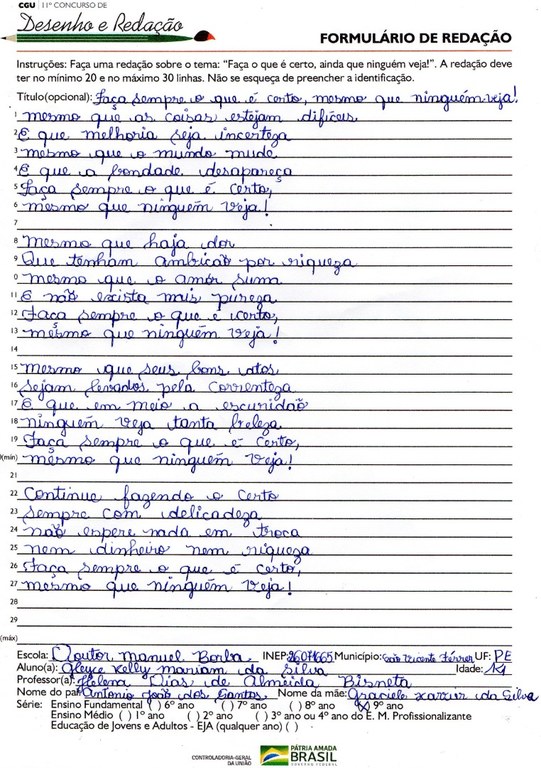 CGU | 11º CONCURSO DE
Desenho e Redação
FORMULÁRIO DE REDAÇÃO
Instruções: Faça uma redação sobre o tema: "Faça o que é certo, ainda que ninguém veja!". A redação deve
ter no mínimo 20 e no máximo 30 linhas. Não se esqueça de preencher a identificação.
Título(opcional): Faça sempre o que é certo, mesmo que ninguém veja!
1 mesmo que as coisas estejam difíceis
2 E que melhoria seja incerteza
3 mesmo que o mundo mude
4 E que a bondade desapareça
5 Faça sempre o que é certo,
6 mesmo que ninguém veja!
7
8 mesmo que haja dor
9 Que tenham ambição por riqueza
0 mesmo que o amor suma
11 E não exista mais pureza
12 Faça sempre o que é certo,
13 mesmo que ninguém veja!
14
15 mesmo que seus bons atos
16 sejam levados pela correnteza
17 E que em meio a escuridão
18 ninguém veja tanta beleza
19 Faça sempre o que é certo,
(mín) mesmo que ninguém veja!
21
22 Continue fazendo o certo
23 sempre com delicadeza
24 não espere nada em troca
25 nem dinheiro nem riqueza
26 Faça sempre o que é certo,
27 mesmo que ninguém veja!
28
29
(máx)
Escola: Doutor manuel Borba. INEP: 26071665 Município: são Vicente Férrer UF: PE
Aluno(a): Gleyce Kelly mariam da silva Idade: 14
Professor(a): Helena Dias de Almeida Bisneta
Nome do pai: Antonio João dos Santos. Nome da mãe: Graciele xavier da Silva
Série: Ensino Fundamental ( ) 6º ano ( ) 7º ano ( ) 8º ano (X) 9º ano
Ensino Médio ( ) 1º ano ( ) 2º ano ( ) 3º ano ou 4º ano do E. M. Profissionalizante
Educação de Jovens e Adultos - EJA (qualquer ano) ( )
CONTROLADORIA-GERAL
DA UNIÃO
PÁTRIA AMADA
BRASIL
GOVERNO FEDERAL